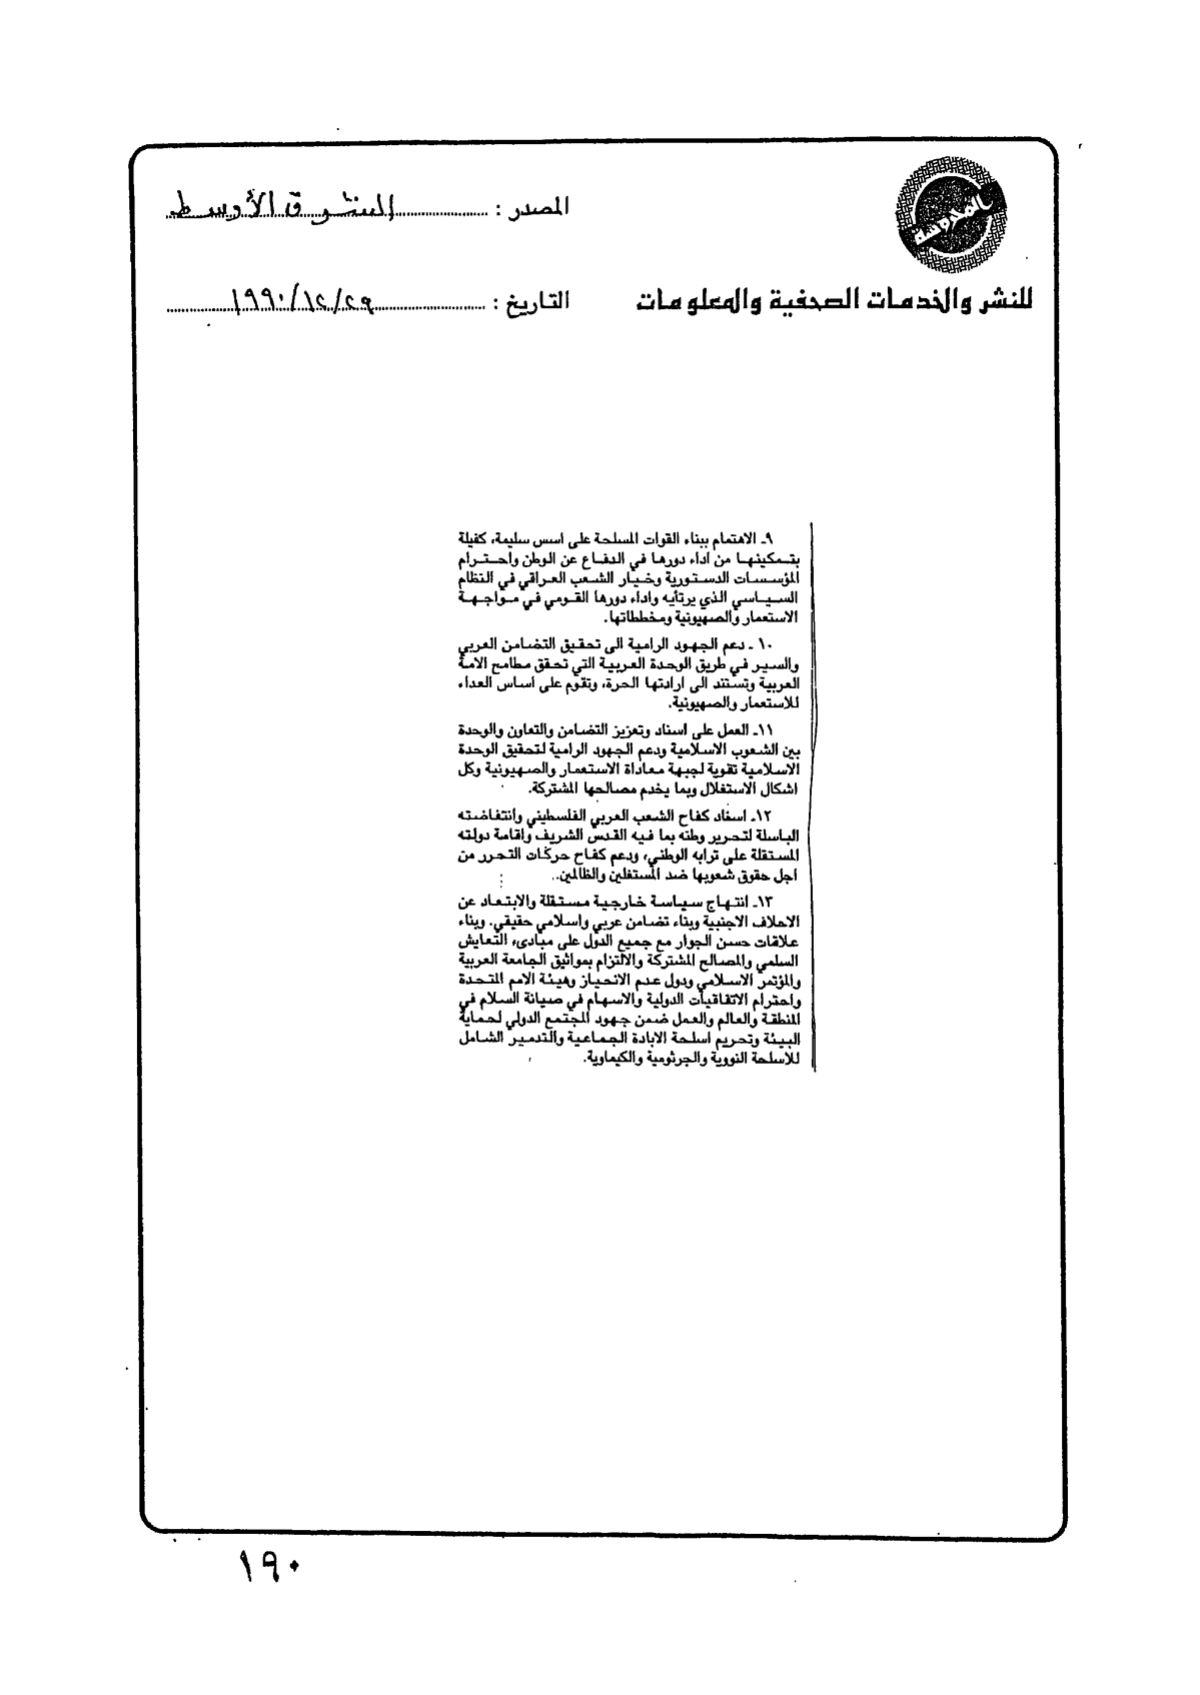 المصدر : الشرق الأوسط
المحروسة
للنشر والخدمات الصحفية والمعلومات
التاريخ : ١٩٩٠/١٢/٢٩
٩ـ الاهتمام ببناء القوات المسلحة على اسس سليمة، كفيلة
بتمكينها من اداء دورها في الدفاع عن الوطن واحترام
المؤسسات الدستورية وخيار الشعب العراقي في النظام
السياسي الذي يرتأيه واداء دورها القومي في مواجهة
الاستعمار والصهيونية ومخططاتها.
١٠ـ دعم الجهود الرامية الى تحقيق التضامن العربي
والسير في طريق الوحدة العربية التي تحقق مطامح الامة
العربية وتستند الى ارادتها الحرة، وتقوم على اساس العداء
للاستعمار والصهيونية.
١١ـ العمل على اسناد وتعزيز التضامن والتعاون والوحدة
بين الشعوب الاسلامية ودعم الجهود الرامية لتحقيق الوحدة
الاسلامية تقوية لجبهة معاداة الاستعمار والصهيونية وكل
اشكال الاستغلال وبما يخدم مصالحها المشتركة.
١٢ـ اسناد كفاح الشعب العربي الفلسطيني وانتفاضته
الباسلة لتحرير وطنه بما فيه القدس الشريف واقامة دولته
المستقلة على ترابه الوطني، ودعم كفاح حركات التحرر من
اجل حقوق شعوبها ضد المستغلين والظالمين.
١٣ـ انتهاج سياسة خارجية مستقلة والابتعاد عن
الاحلاف الاجنبية وبناء تضامن عربي واسلامي حقيقي. وبناء
علاقات حسن الجوار مع جميع الدول على مبادىء التعايش
السلمي والمصالح المشتركة والالتزام بمواثيق الجامعة العربية
والمؤتمر الاسلامي ودول عدم الانحياز وهيئة الامم المتحدة
واحترام الاتفاقيات الدولية والاسهام في صيانة السلام في
المنطقة والعالم والعمل ضمن جهود المجتمع الدولي لحماية
البيئة وتحريم اسلحة الابادة الجماعية والتدمير الشامل
للاسلحة النووية والجرثومية والكيماوية.
١٩٠